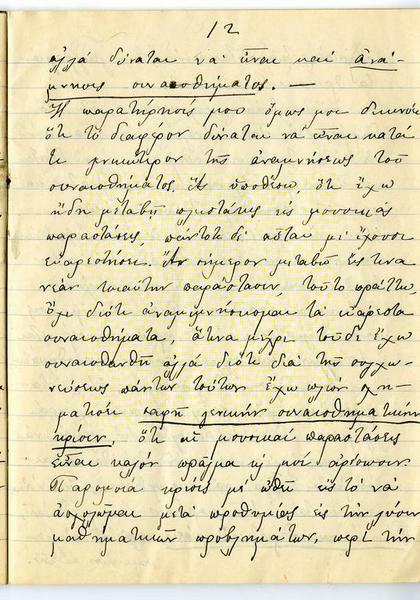 12
ἀλλὰ δύναται νὰ εἶναι καὶ ἀνά-
μνησις συναισθήματος. —
Ἡ παρατήρησίς μου ὅμως μοι δεικνύει
ὅτι τὸ διαφέρον δύναται νὰ εἶναι κατά
τι μικρότερον τῆς ἀναμνήσεως τοῦ
συναισθήματος. Ἂς ὑποθέσω, ὅτι ἔχω
ἤδη μεταβῇ πλειστάκις εἰς μουσικὰς
παραστάσεις, πάντοτε δὲ αὗται μὲ ἔχουσι
εὐαρεστήσει. Ἂν σήμερον μεταβῶ εἰς τινα
νέαν τοιαύτην παράστασιν, τοῦτο πράττω,
ὄχι διότι ἀναμιμνήσκομαι τὰ εὐάρεστα
συναισθήματα, ἅτινα μέχρι τοῦδε ἔχω
συναισθανθῆ ἀλλὰ διότι διὰ τῆς συγχω-
νεύσεως πάντων τούτων ἔχω πλέον σχη-
ματίσει σαφῆ γενικὴν συναισθηματικὴν
κρίσιν, ὅτι αἱ μουσικαὶ παραστάσεις
εἶναι καλὸν πρᾶγμα καὶ μοὶ ἀρέσουσιν.
Παρομοία κρίσις μὲ ὠθεῖ εἰς τὸ νὰ
ἀσχολῶμαι μετὰ προθυμίας εἰς τὴν λύσιν
μαθηματικῶν προβλημάτων, περὶ τὴν